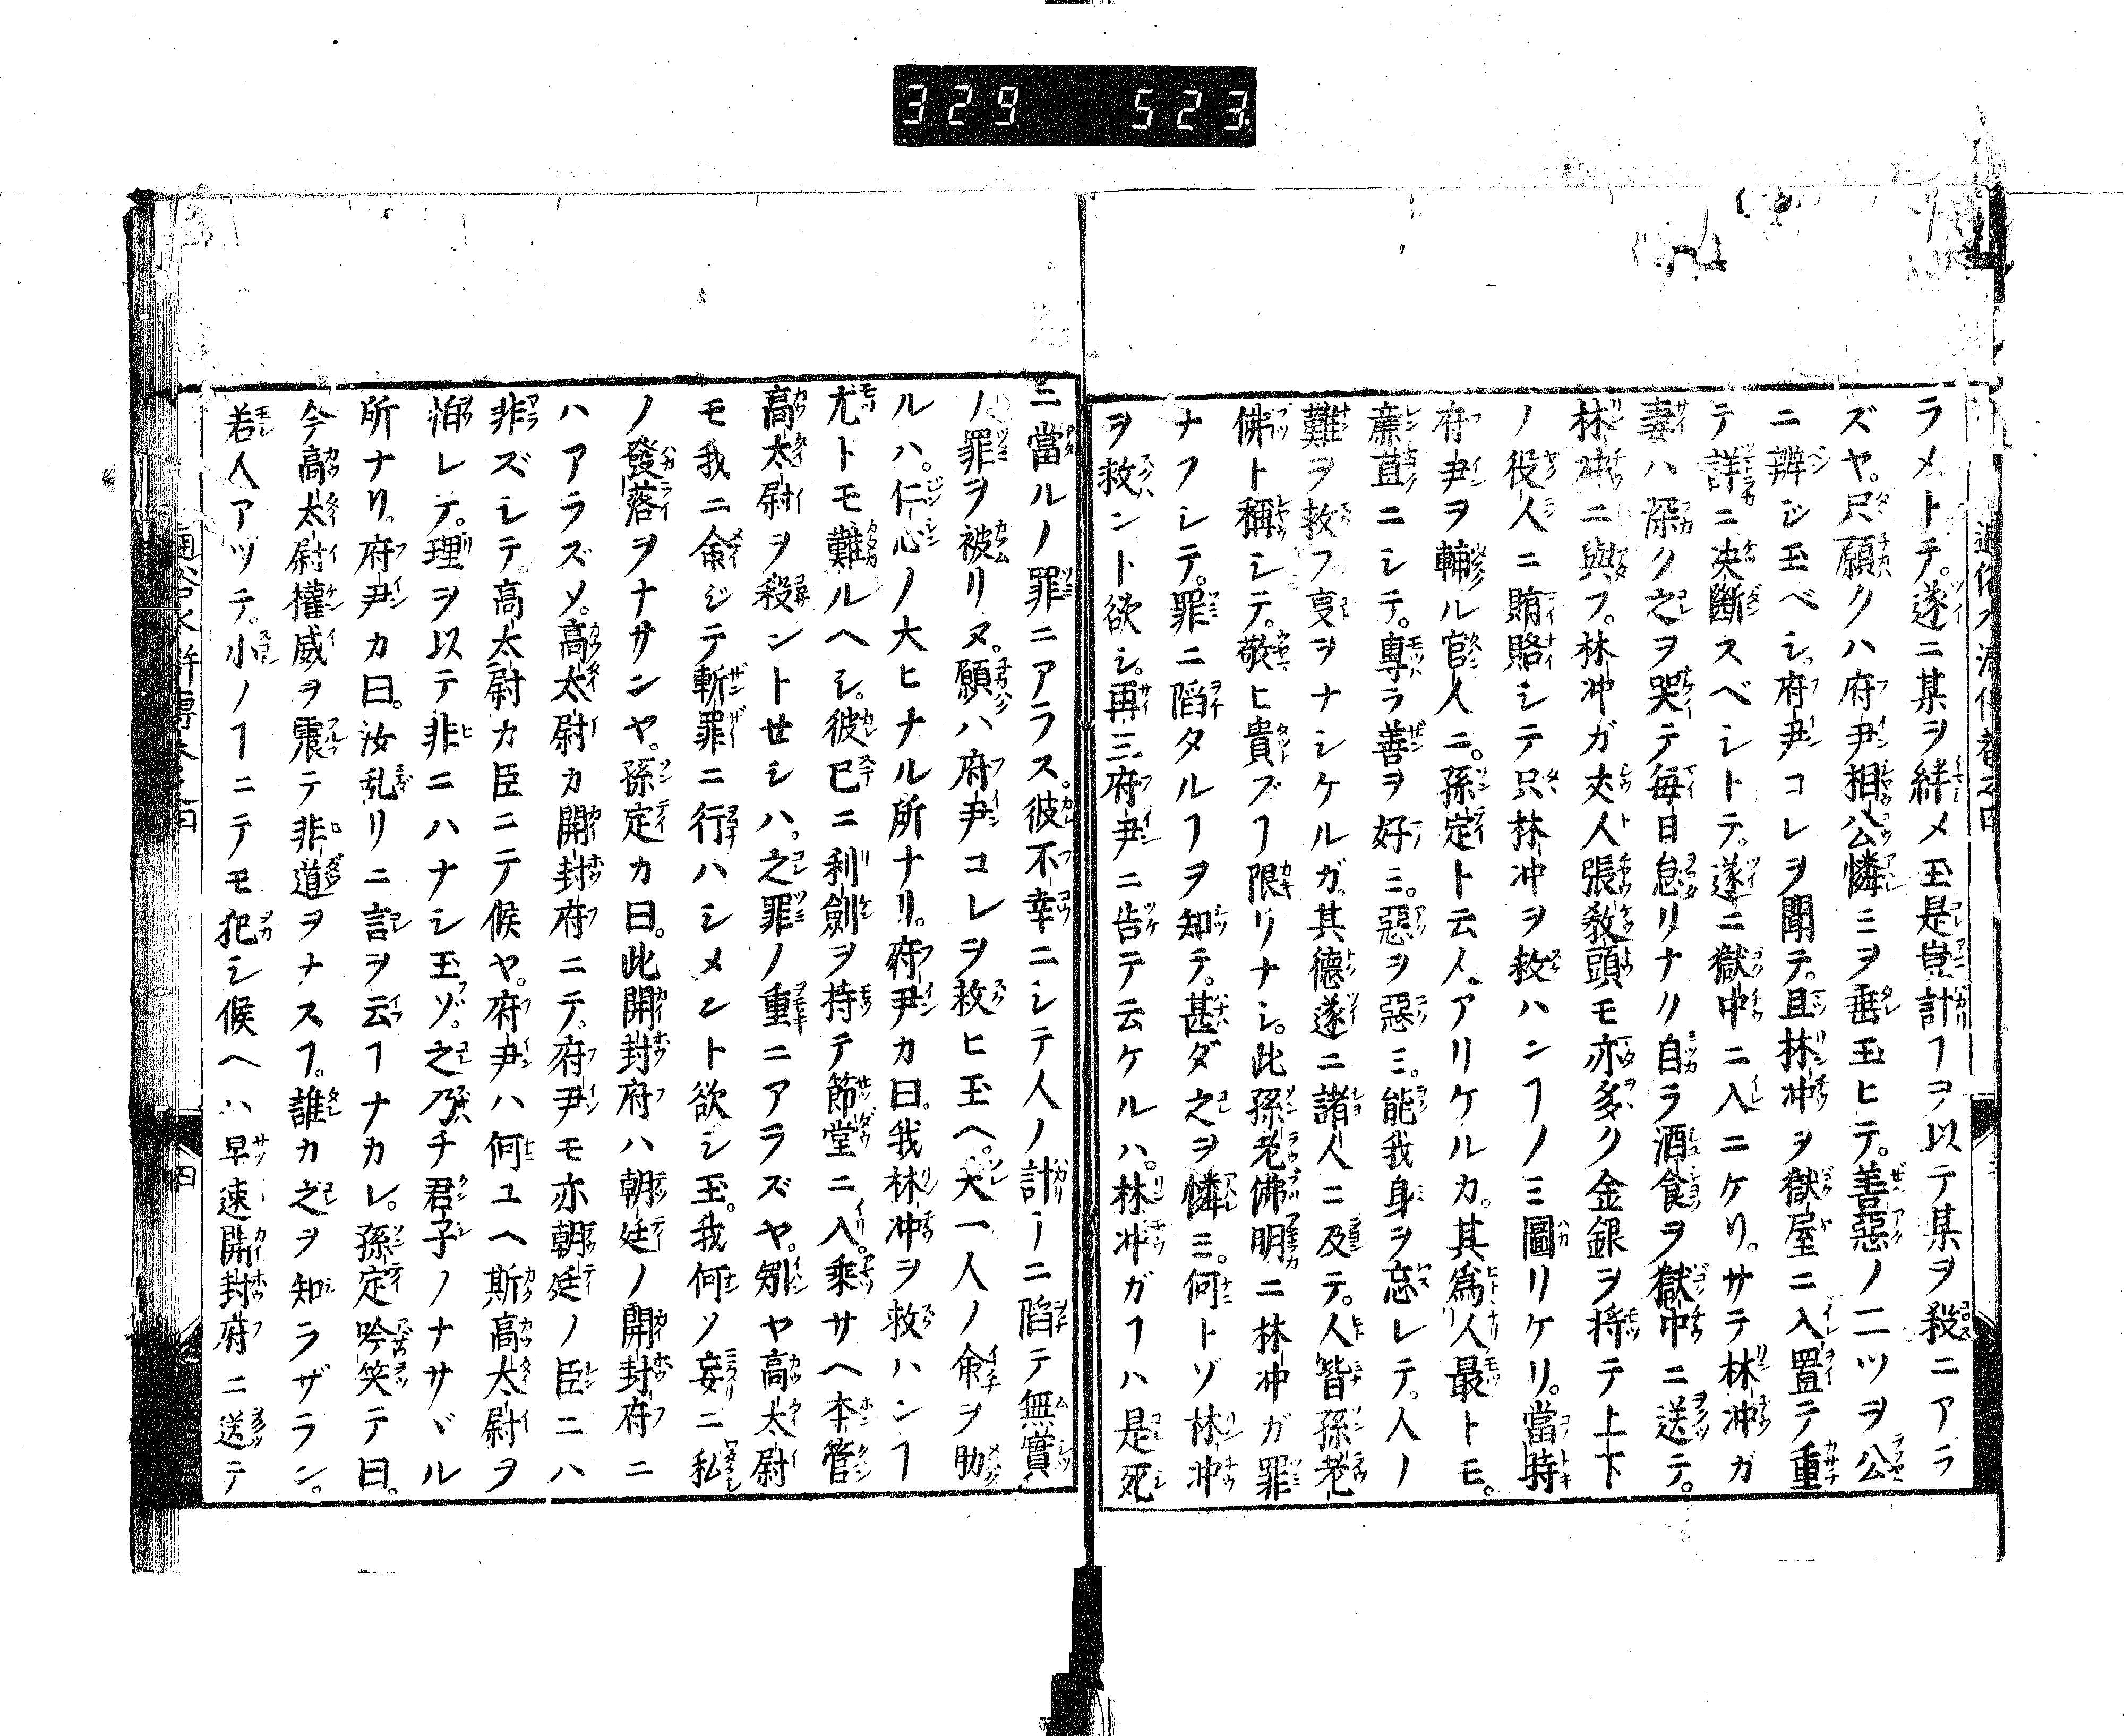 329 523
ラメトテ。遂ニ某ヲ絆メ玉是豈計ヿヲ以テ某ヲ殺ニアラ
ズヤ。只願クハ府尹相公憐ミヲ垂玉ヒテ。善惡ノ二ツヲ公
ニ辨ジ玉ベシ。府尹コレヲ聞テ。且林冲ヲ獄屋ニ入置テ重
テ詳ニ决斷スベシトテ。遂ニ獄中ニ入ニケリ。サテ林冲ガ
妻ハ深ク之ヲ哭テ毎日怠リナク自ラ酒食ヲ獄中ニ送テ。
林冲ニ與フ。林冲ガ丈人張敎頭モ亦多ク金銀ヲ將テ上下
ノ役人ニ賄賂シテ只林冲ヲ救ハンヿノミ圖リケリ。當時
府尹ヲ輔ル官人ニ。孫定ト云人アリケルカ。其爲人最トモ。
亷直ニシテ。專ラ善ヲ好ミ。惡ヲ惡ミ。能我身ヲ忘レテ。人ノ
難ヲ救フ亊ヲナシケルガ。其德遂ニ諸人ニ及テ。人皆孫老
佛ト稱シテ。敬ヒ貴ブヿ限リナシ。此孫老佛明ニ林冲ガ罪
ナフシテ。罪ニ陷タルヿヲ知テ。甚ダ之ヲ憐ミ。何トゾ林冲
ヲ救ント欲シ。再三府尹ニ告テ云ケルハ。林冲ガヿハ是死
ニ當ルノ罪ニアラス。彼不幸ニシテ人ノ計ーニ陷テ無實
ノ罪ヲ被リヌ。願ハ府尹コレヲ救ヒ玉ヘ。夫一人ノ命ヲ助
ルハ。仁心ノ大ヒナル所ナリ。府尹カ曰。我林冲ヲ救ハンヿ
尤トモ難ルヘシ。彼已ニ利劍ヲ持テ節堂ニ入。乘サヘ本管
高太尉ヲ殺ントせシハ。之罪ノ重ニアラズヤ。矧ヤ高太尉
モ我ニ命ジテ斬罪ニ行ハシメント欲シ玉。我何ソ妄ニ私
ノ發落ヲナサンヤ。孫定カ曰。此開封府ハ朝廷ノ開封府ニ
ハアラズメ。高太尉カ開封府ニテ。府尹モ亦朝廷ノ臣ニハ
非ズシテ高太尉カ臣ニテ候ヤ。府尹ハ何ユヘ斯高太尉ヲ
怕レテ。理ヲ以テ非ニハナシ玉ゾ。之乃チ君子ノナサヾル
所ナリ。府尹カ曰。汝乱リニ言ヲ云ヿナカレ。孫定吟笑テ曰。
今高太尉權威ヲ震テ非道ヲナスヿ。誰カ之ヲ知ラザラン。
若人アツテ。小ノヿニテモ犯シ候ヘハ早速開封府ニ送テ